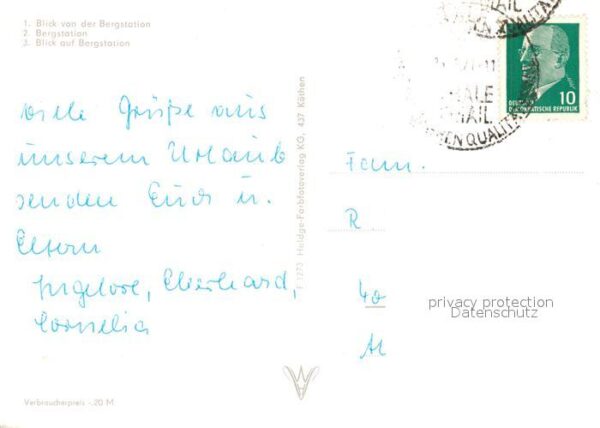 1. Blick von der Bergstation
2. Bergstation
3. Blick auf Bergstation
viele Grüße aus
unserem Urlaub
senden Euch u.
Eltern
Ingelore, Eberhard,
Cornelia
Verbraucherpreis -,20 M
Heldge-Farbfotoverlag KG, 437 Köthen
MAIL
QUALITÄT
MAIL
QUALIT
DEUTSCHE
DEMOKRATISCHE REPUBLIK
10
Fam.
R
40
privacy protection
Datenschutz